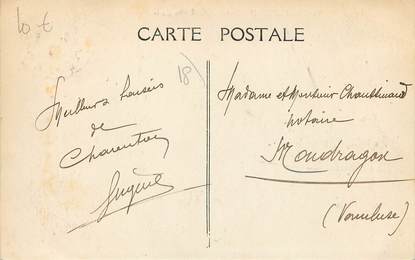 10 €
CARTE POSTALE
18)
Meilleurs baisers
de
Charenton
Madame et Monsieur
notaire
Mondragon
(Vaucluse)